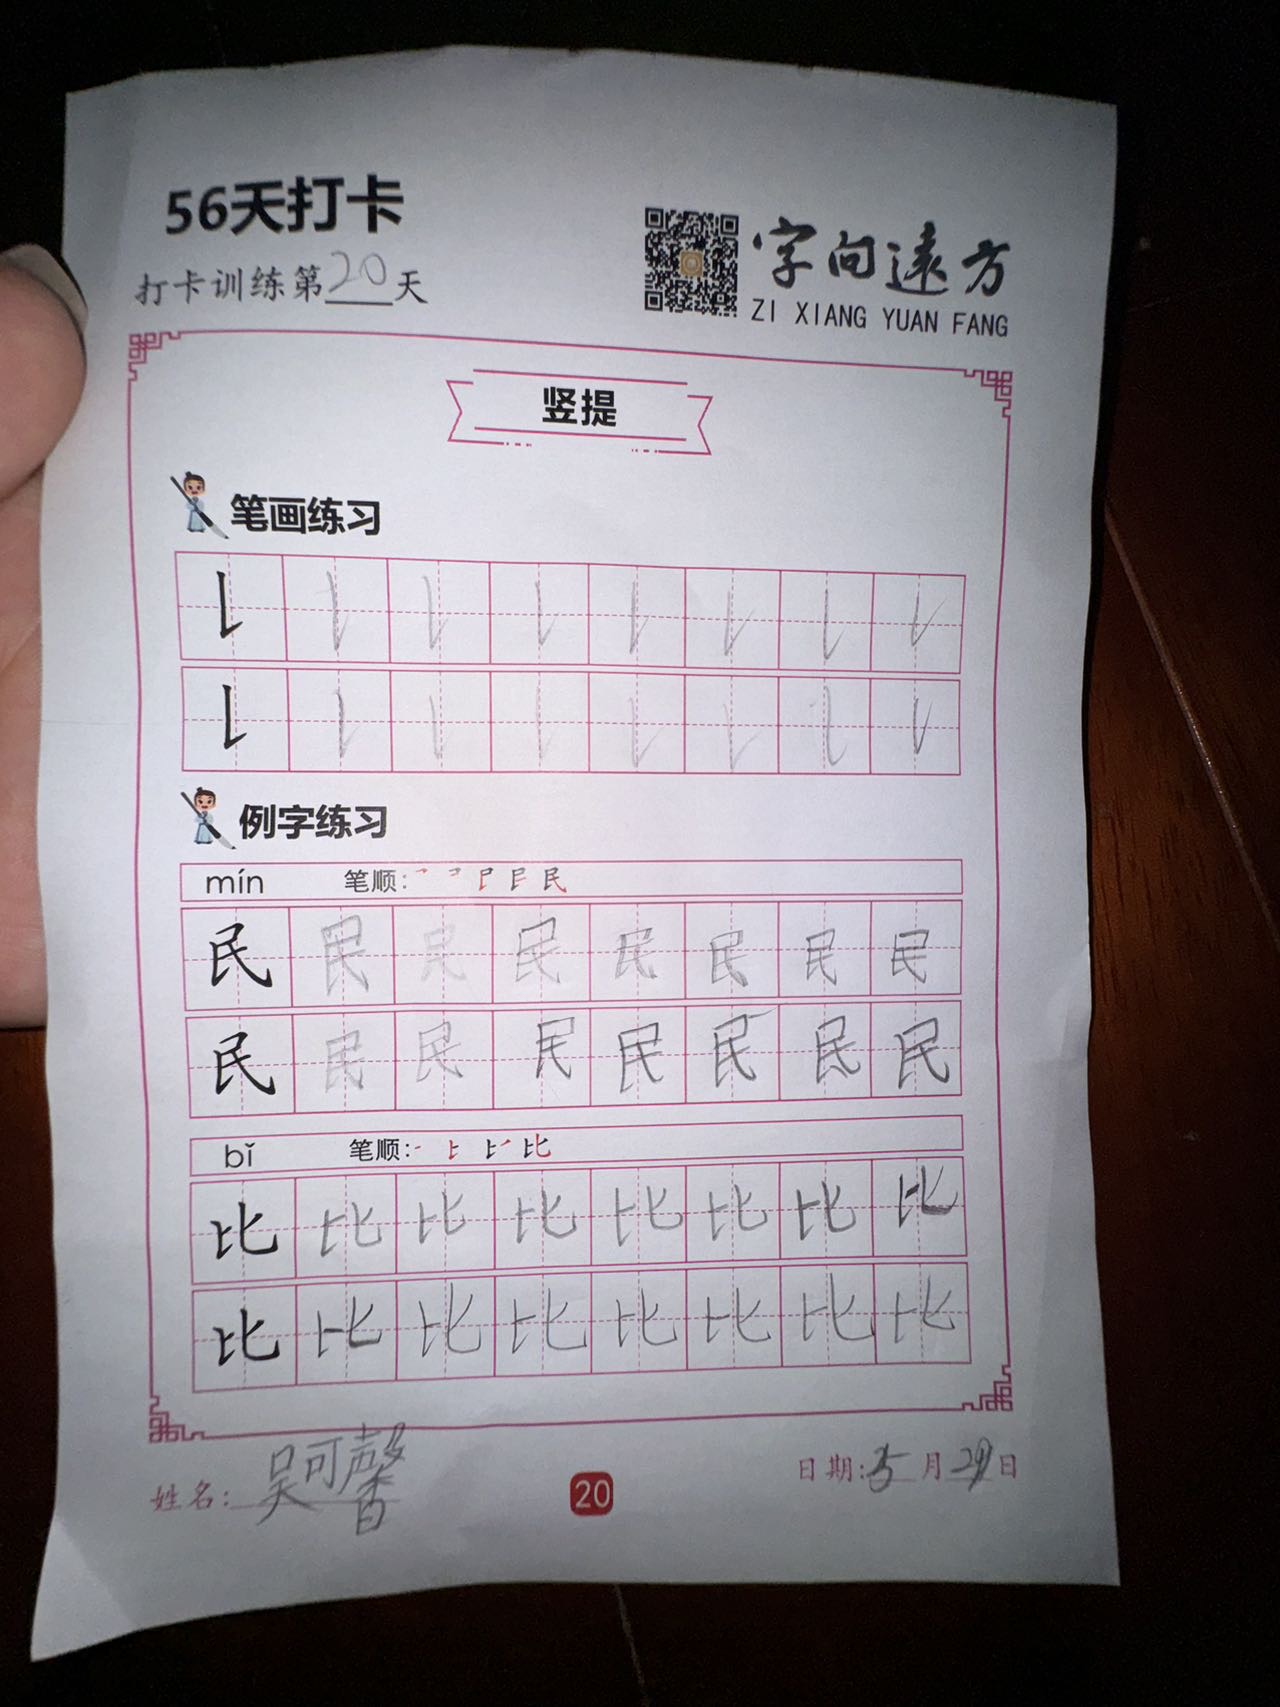 56天打卡
打卡训练第20天
字向遠方
ZI XIANG YUAN FANG
竖提
笔画练习
例字练习
mín 笔顺:
民 民 民 民 民 民 民 民
民 民 民 民 民 民 民 民
bǐ 笔顺:
比 比 比 比 比 比 比 比
比 比 比 比 比 比 比 比
姓名: 吴可馨
20
日期: 5月29日